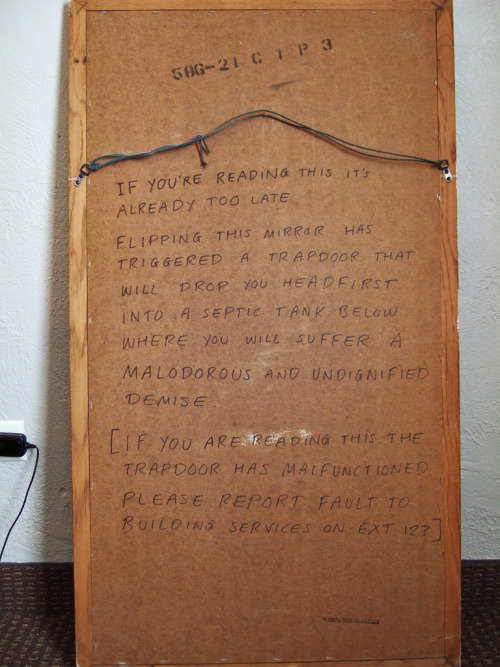 586-21 C I P 3
IF YOU'RE READING THIS IT'S
ALREADY TOO LATE
FLIPPING THIS MIRROR HAS
TRIGGERED A TRAPDOOR THAT
WILL DROP YOU HEADFIRST
INTO A SEPTIC TANK BELOW
WHERE YOU WILL SUFFER A
MALODOROUS AND UNDIGNIFIED
DEMISE.
[IF YOU ARE READING THIS THE
TRAPDOOR HAS MALFUNCTIONED.
PLEASE REPORT FAULT TO
BUILDING SERVICES ON EXT 123]